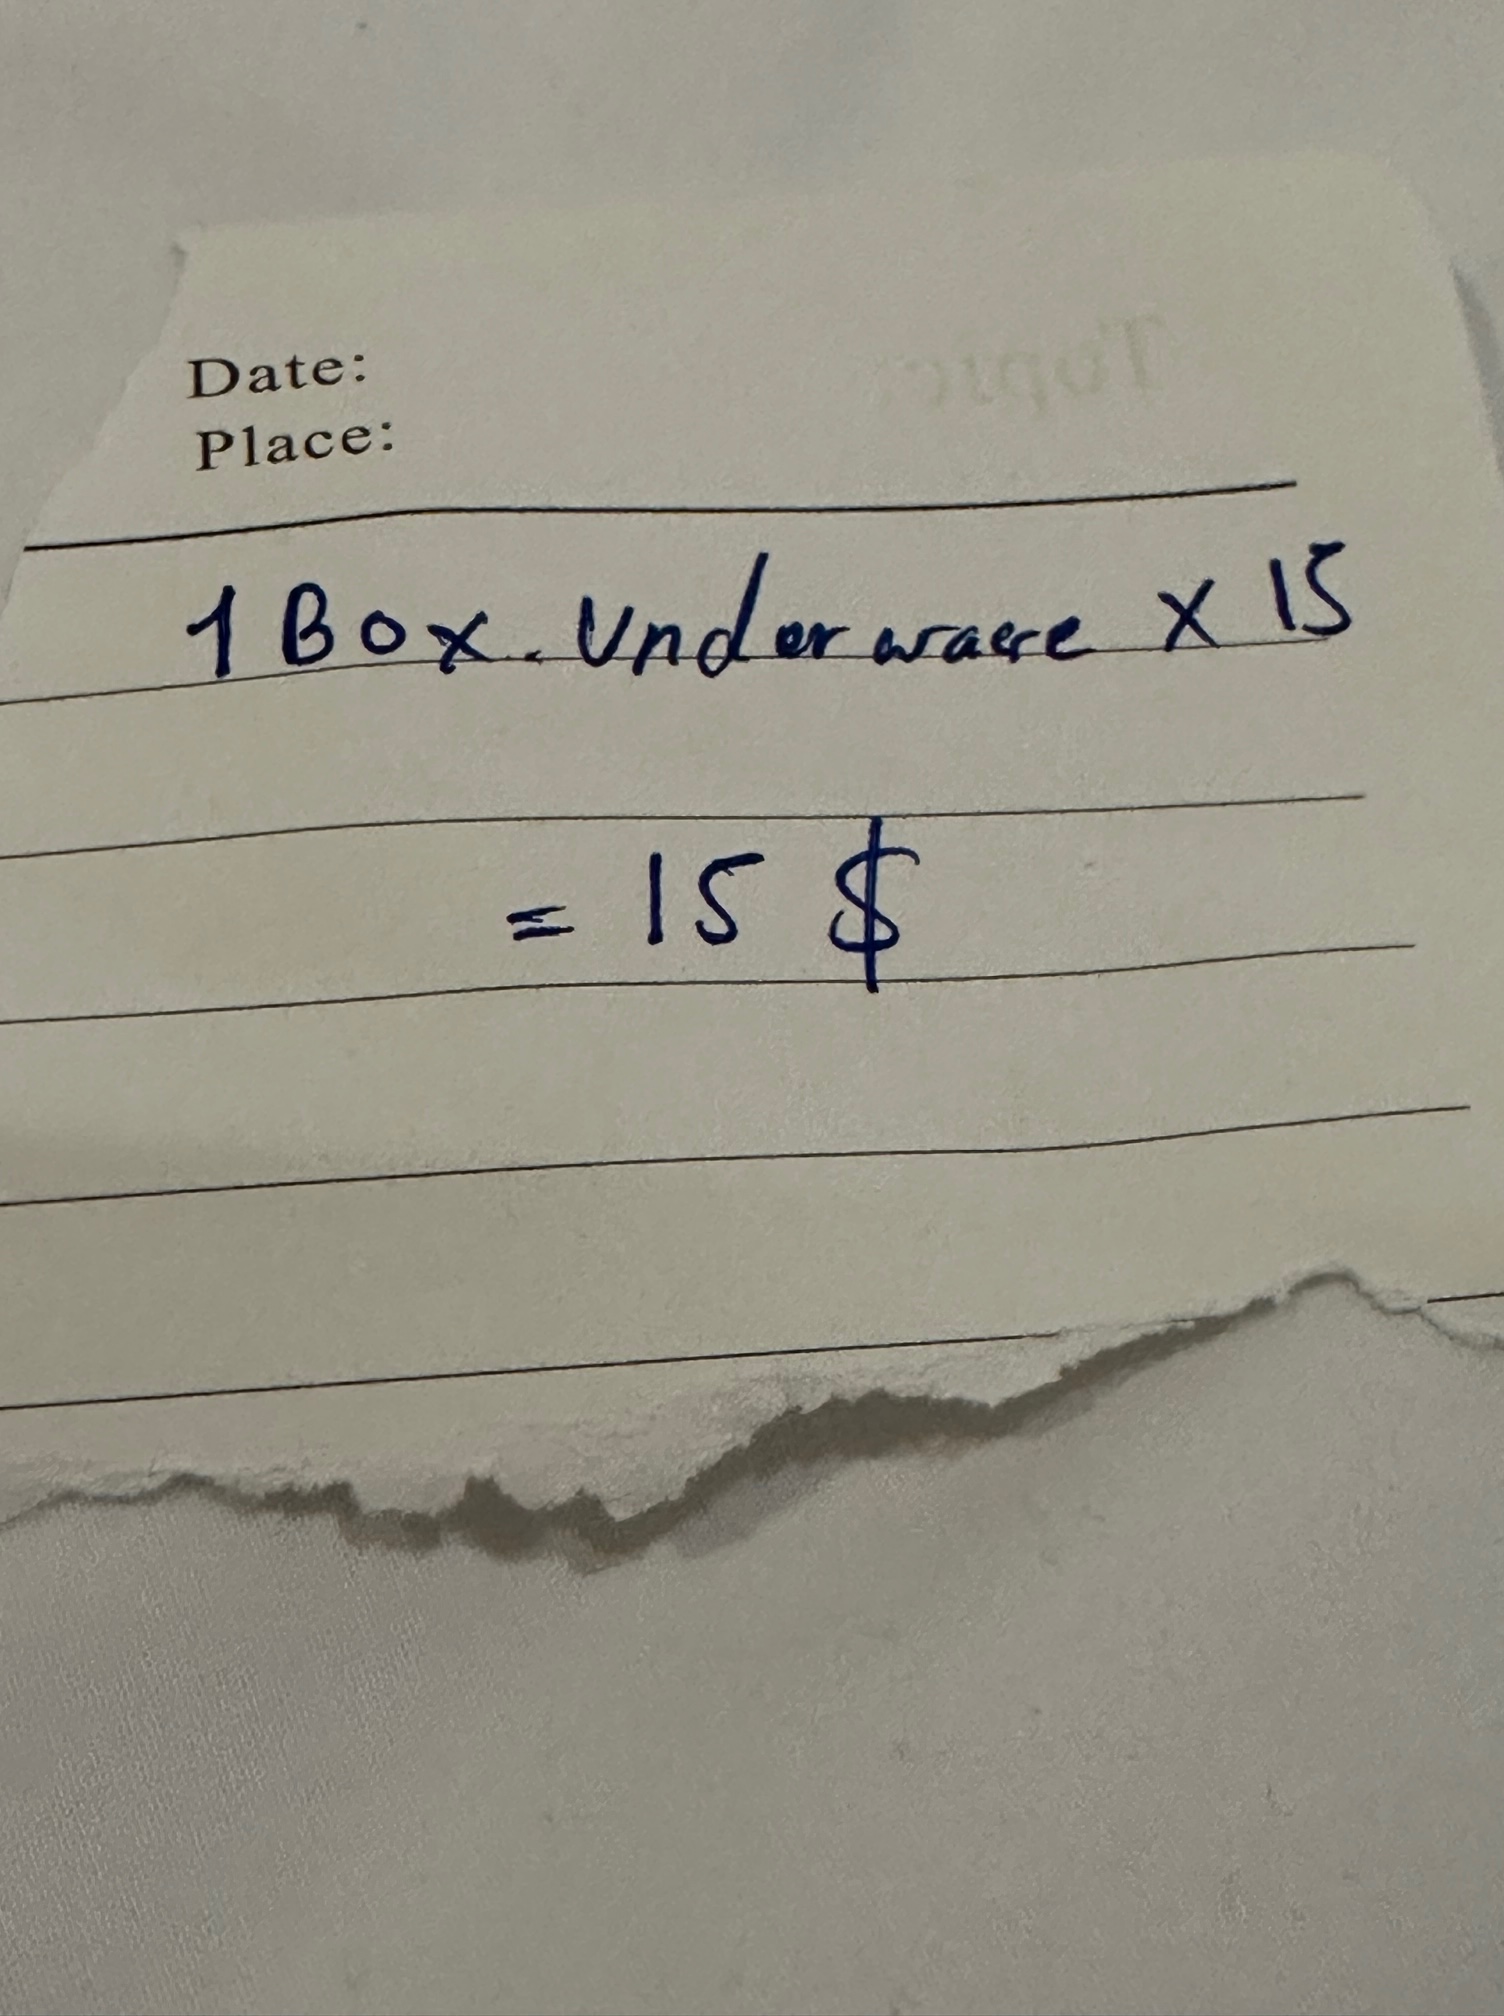 Topic:
Date:
Place:
1 Box. Underwaere x 15
= 15 $